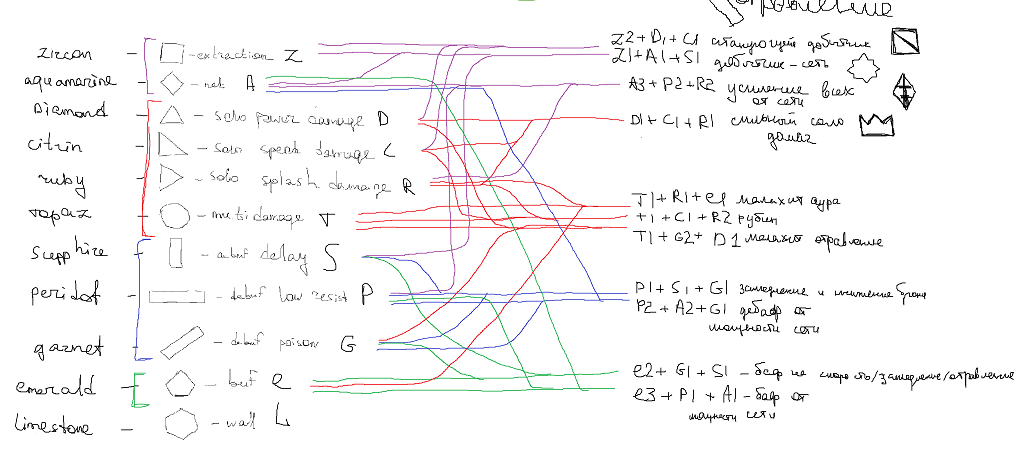 отравление
zircon - extraction Z
aquamarine - net A
Diamond - solo power damage D
citrin - solo speed damage C
ruby - solo splash damage R
topaz - multi damage T
sapphire - debuf delay S
peridot - debuf low resist P
garnet - debuf poison G
emerald - buf e
limestone - wall L
Z2 + D1 + C1 атакующий добытчик
Z1 + A1 + S1 добытчик - сеть
A3 + P2 + R2 усиление всех
от сети
D1 + C1 + R1 сильный соло
домаг
T1 + R1 + e1 малахит аура
T1 + C1 + R2 рубин
T1 + G2 + D1 малахит отравление
P1 + S1 + G1 замедление и снижение брони
P2 + A2 + G1 дебаф от
мощности сети
e2 + G1 + S1 - баф на скорость/замедление/отравление
e3 + P1 + A1 - баф от
мощности сети